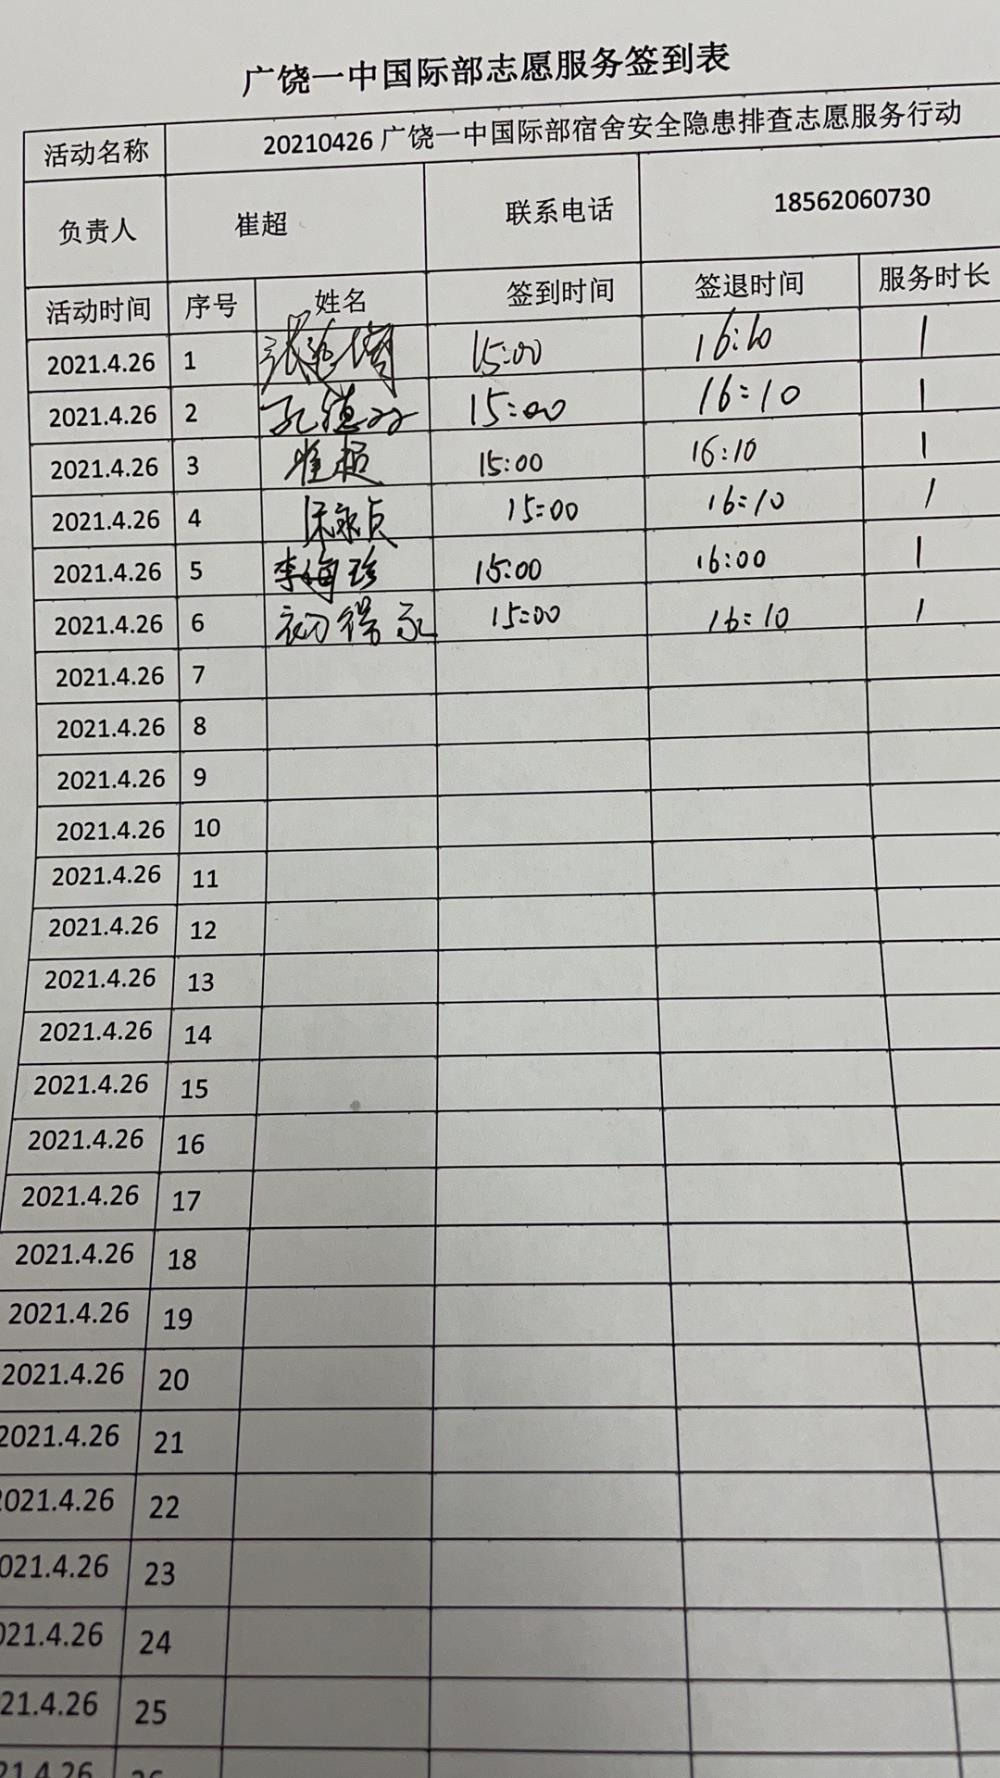 广饶一中国际部志愿服务签到表
活动名称 20210426广饶一中国际部宿舍安全隐患排查志愿服务行动
负责人 崔超 联系电话 18562060730
活动时间 序号 姓名 签到时间 签退时间 服务时长
2021.4.26 1 15:00 16:10 1
2021.4.26 2 15:00 16:10 1
2021.4.26 3 崔超 15:00 16:10 1
2021.4.26 4 15:00 16:10 1
2021.4.26 5 李梅珍 15:00 16:00 1
2021.4.26 6 15:00 16:10 1
2021.4.26 7
2021.4.26 8
2021.4.26 9
2021.4.26 10
2021.4.26 11
2021.4.26 12
2021.4.26 13
2021.4.26 14
2021.4.26 15
2021.4.26 16
2021.4.26 17
2021.4.26 18
2021.4.26 19
2021.4.26 20
2021.4.26 21
2021.4.26 22
021.4.26 23
021.4.26 24
21.4.26 25
21.4.26 26